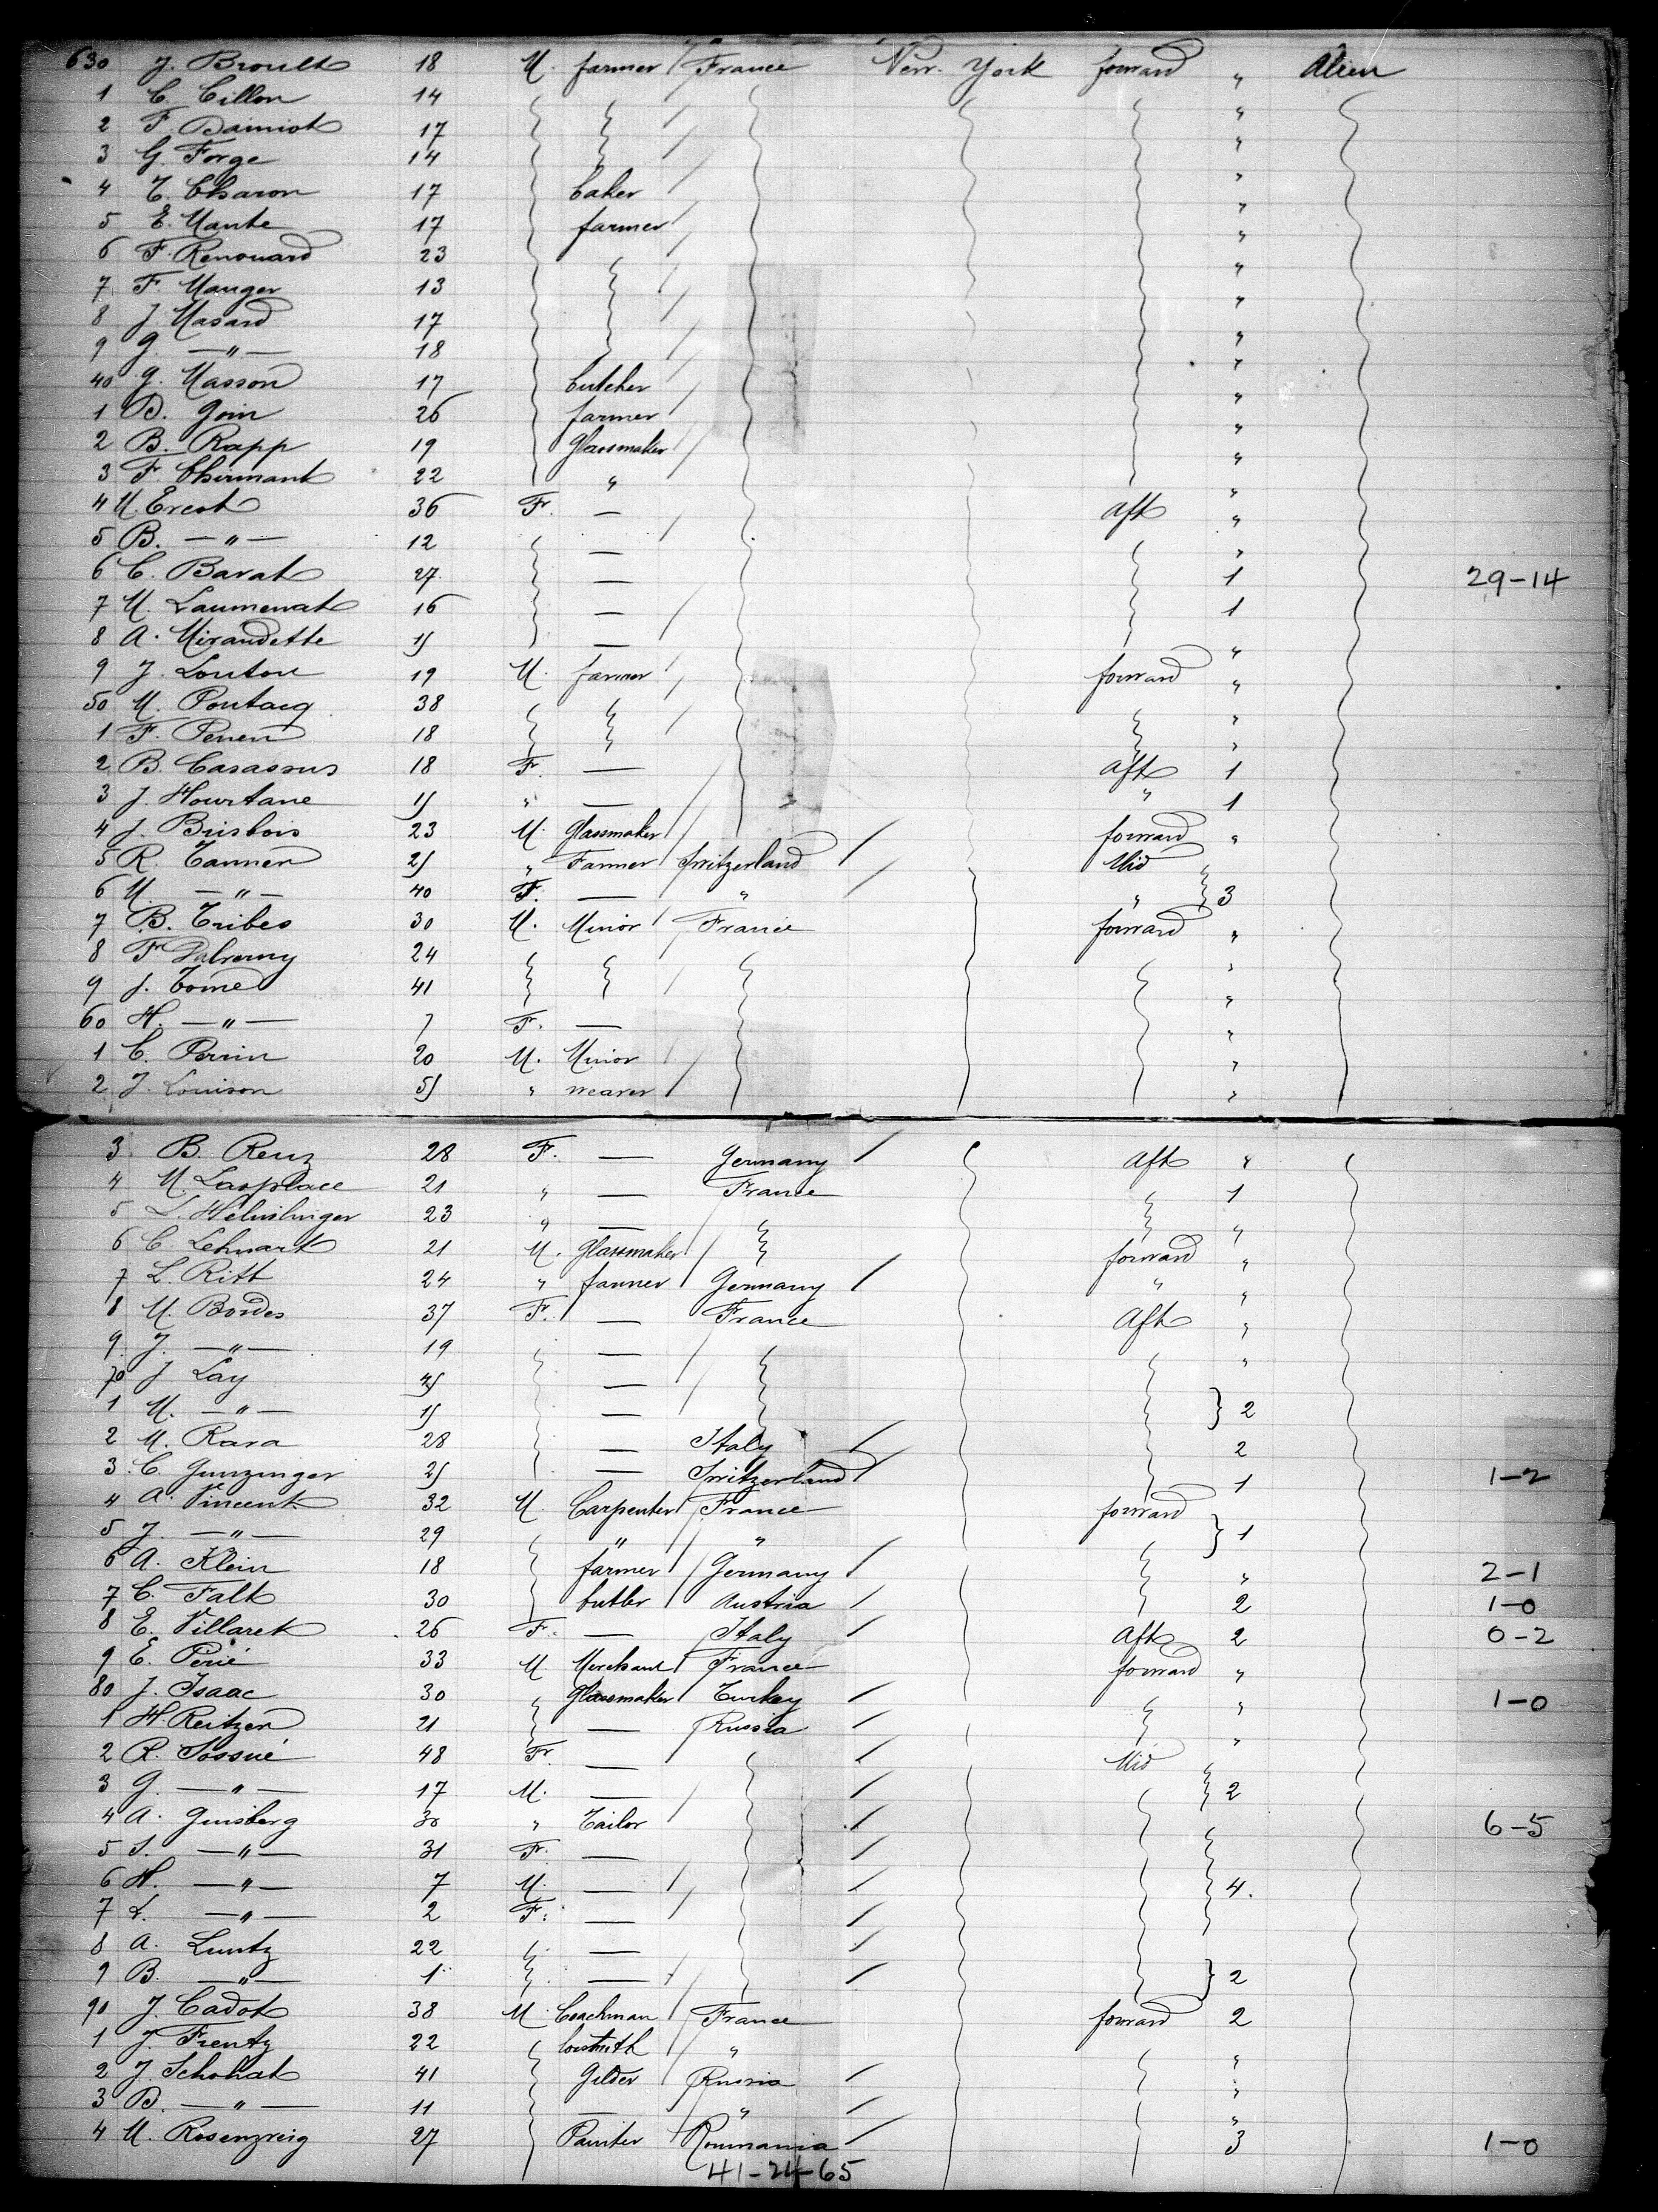 630 J. Broult 18 M. farmer France New York forward " Alien
1 C. Cillon 14 "
2 F. Dainiot 17 "
3 G. Forge 14 "
4 C. Charon 17 baker "
5 E. Mante 17 farmer "
6 F. Renouard 23 "
7 F. Mauger 13 "
8 J. Masard 17 "
9 J. —"— 18 "
40 G. Masson 17 butcher "
1 D. Join 26 farmer "
2 B. Rapp 19 Glassmaker "
3 F. Chirmant 22 " "
4 M. Ercot 36 F. — aft "
5 B. —"— 12 — "
6 C. Barat 27 — 1 29-14
7 M. Laumenat 16 — 1
8 A. Mirandette 15 — "
9 J. Louton 19 M. farmer forward "
50 M. Pontacq 38 "
1 F. Penen 18 "
2 B. Casassus 18 F. — aft 1
3 J. Hourtane 15 " — " 1
4 J. Brisbois 23 M. Glassmaker forward "
5 R. Tanner 25 " Farmer Switzerland Mid
6 M. —"— 40 F. — " " 3
7 B. Tribes 30 M. Minor France forward "
8 F. Dalremy 24 "
9 J. Tome 41 "
60 H. —"— 7 F. — "
1 C. Perrin 20 M. Minor "
2 J. Louison 55 " weaver "
3 B. Renz 28 F. — Germany aft "
4 M. Lasplace 21 " — France 1
5 L. Helmlinger 23 " — "
6 C. Lehnart 21 M. Glassmaker forward "
7 L. Ritt 24 " farmer Germany " "
8 M. Bordes 37 F. — France Aft "
9 J. —"— 19 — "
70 J. Lay 45 —
1 M. —"— 15 — 2
2 M. Rara 28 — Italy 2
3 C. Gunzinger 25 — Switzerland 1 1-2
4 A. Vincent 32 M. Carpenter France forward
5 J. —"— 29 " " 1
6 A. Klein 18 farmer Germany " 2-1
7 C. Falt 30 butler Austria 2 1-0
8 E. Villaret 26 F. — Italy Aft 2 0-2
9 E. Perié 33 M. Merchant France forward "
80 J. Isaac 30 " Glassmaker Turkey " 1-0
1 H. Reitzen 21 — Russia "
2 R. Sossué 48 Fr. — Mid
3 G. —"— 17 M. — 2
4 A. Ginsberg 30 " Tailor 6-5
5 S. —"— 31 Fr. —
6 H. —"— 7 M. — 4.
7 L. —"— 2 F. —
8 A. Luntz 22 —
9 B. —"— 1 — 2
90 J. Cadot 38 M. Coachman France forward 2
1 J. Frentz 22 " "
2 J. Schohat 41 Gilder Russia "
3 D. —"— 11 — " "
4 M. Rosenzreig 27 Painter Roumania 3 1-0
41-24-65